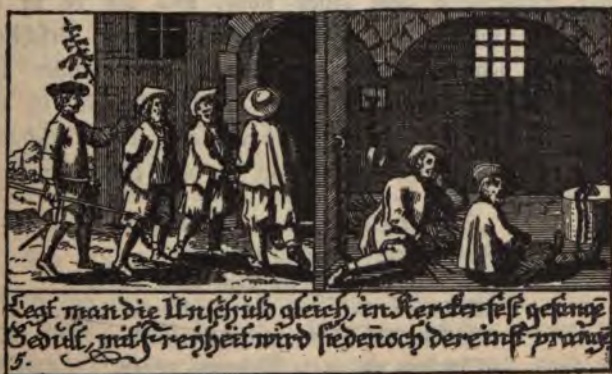 Legt man die Unschuld gleich, in Kercker fest gefangē
Gedult, mit Freyheit wird sie deñoch dereinst prange
5.